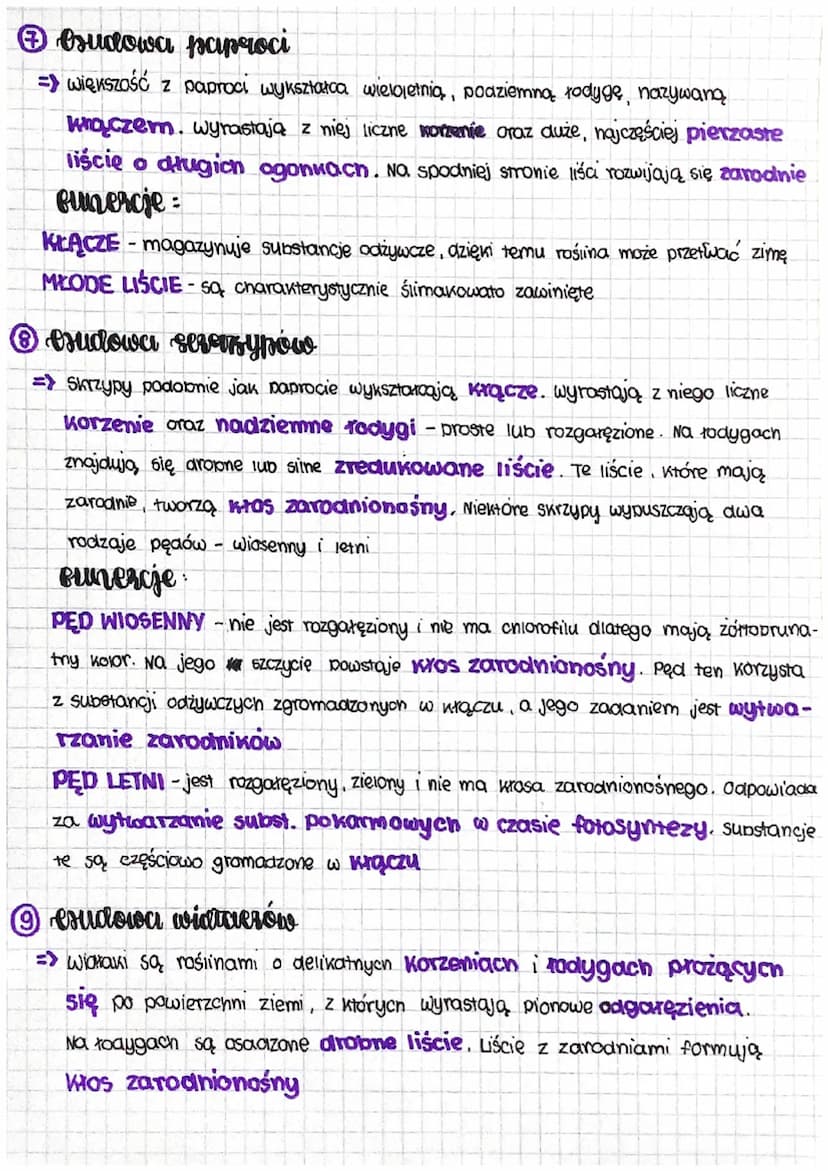 7 Budowa paproci
=> większość z paproci wykształca wieloletnią, podziemną łodygę, nazywaną
kłączem. wyrastają z niej liczne korzenie oraz duże, najczęściej pierzaste
liście o długich ogonkach. Na spodniej stronie liści rozwijają się zarodnie
Funkcje:
KŁĄCZE - magazynuje substancje odżywcze, dzięki temu roślina może przetrwać zimę
MŁODE LIŚCIE - są charakterystycznie ślimakowato zawinięte
8 Budowa skrzypów
=> Skrzypy podobnie jak paprocie wykształcają kłącze. wyrastają z niego liczne
korzenie oraz nadziemne łodygi - proste lub rozgałęzione. Na łodygach
znajdują się drobne lub silne zredukowane liście. Te liście, które mają
zarodnie, tworzą kłos zarodnionośny. Niektóre skrzypy wypuszczają dwa
rodzaje pędów - wiosenny i letni
Funkcje:
PĘD WIOSENNY - nie jest rozgałęziony i nie ma chlorofilu dlatego mają żółtobruna-
tny kolor. Na jego szczycie powstaje kłos zarodnionośny. Pęd ten korzysta
z substancji odżywczych zgromadzonych w kłączu, a jego zadaniem jest wytwa-
rzanie zarodników
PĘD LETNI - jest rozgałęziony, zielony i nie ma kłosa zarodnionośnego. Odpowiada
za wytwarzanie subst. pokarmowych w czasie fotosyntezy. Substancje
te są częściowo gromadzone w kłączu
9 Budowa widłaków
=> Widłaki są roślinami o delikatnych korzeniach i łodygach płożących
się po powierzchni ziemi, z których wyrastają pionowe odgałęzienia.
Na łodygach są osadzone drobne liście. Liście z zarodniami formują
kłos zarodnionośny